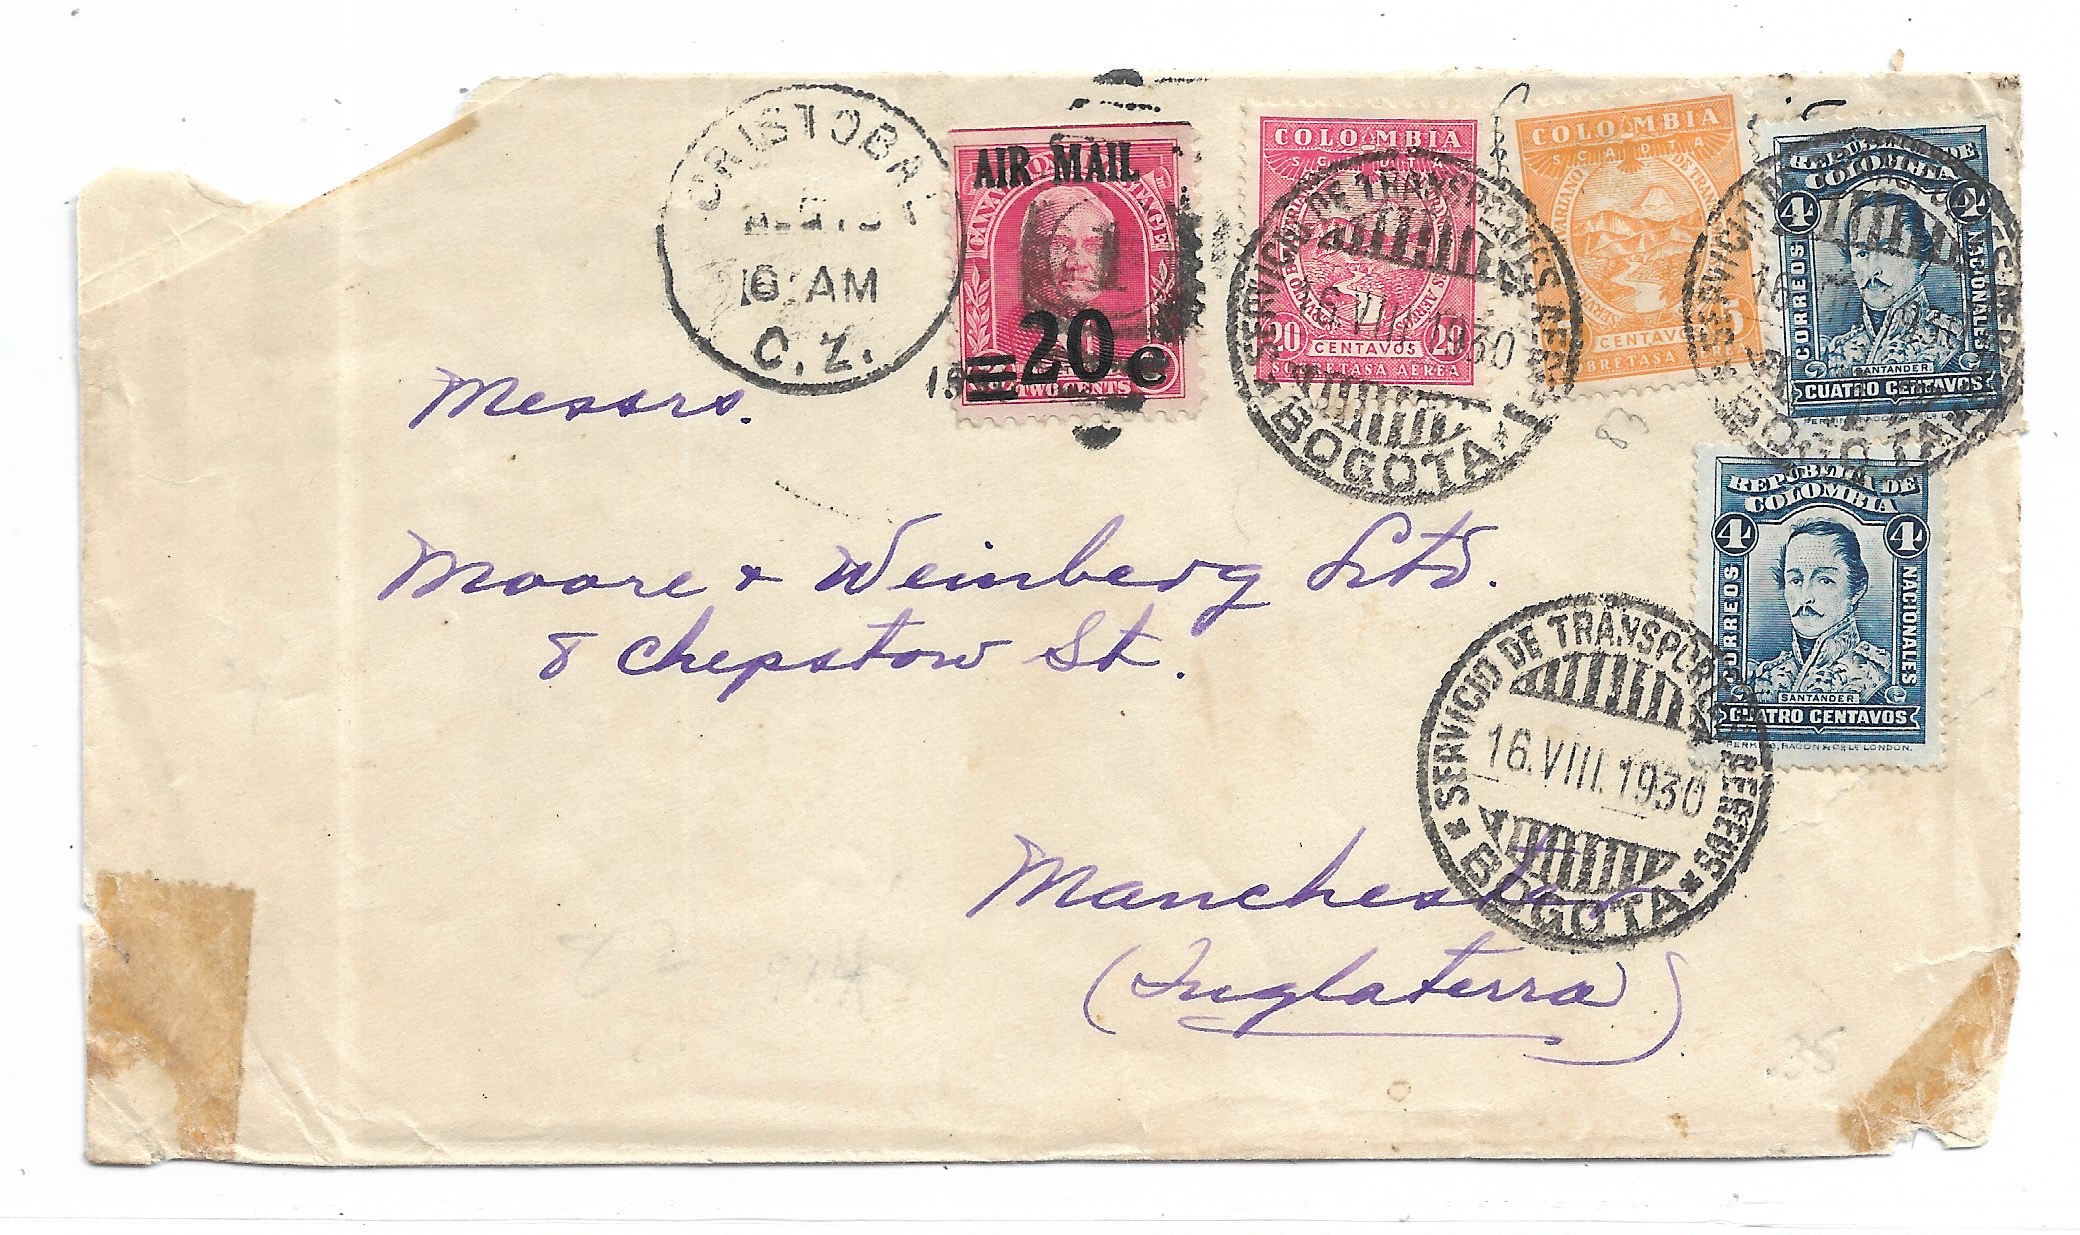 CRISTOBAL
10 AM
C. Z.
AIR MAIL
CANAL ZONE POSTAGE
20 c
TWO CENTS
COLOMBIA
SCADTA
20 20
CENTAVOS
SOBRETASA AEREA
COLOMBIA
SCADTA
5
CENTAVOS
SOBRETASA AEREA
REPUBLICA DE
COLOMBIA
4 4
CORREOS NACIONALES
SANTANDER
CUATRO CENTAVOS
SERVICIO DE TRANSPORTES AEREOS
16.VIII.1930
BOGOTA-1
SERVICIO DE TRANSPORTES AEREOS
BOGOTA
83
Messrs.
Moore & Weinberg Ltd.
8 Chepstow St.
Manchester
(Inglaterra)
REPUBLICA DE
COLOMBIA
4 4
CORREOS NACIONALES
SANTANDER
CUATRO CENTAVOS
PERKINS, BACON & Co Ld LONDON.
SERVICIO DE TRANSPORTES AEREOS
16.VIII.1930
BOGOTA